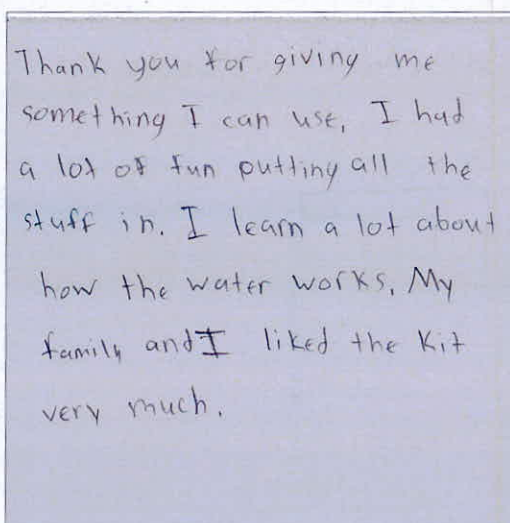 Thank you for giving me
something I can use, I had
a lot of fun putting all the
stuff in. I learn a lot about
how the water works. My
family and I liked the Kit
very much.